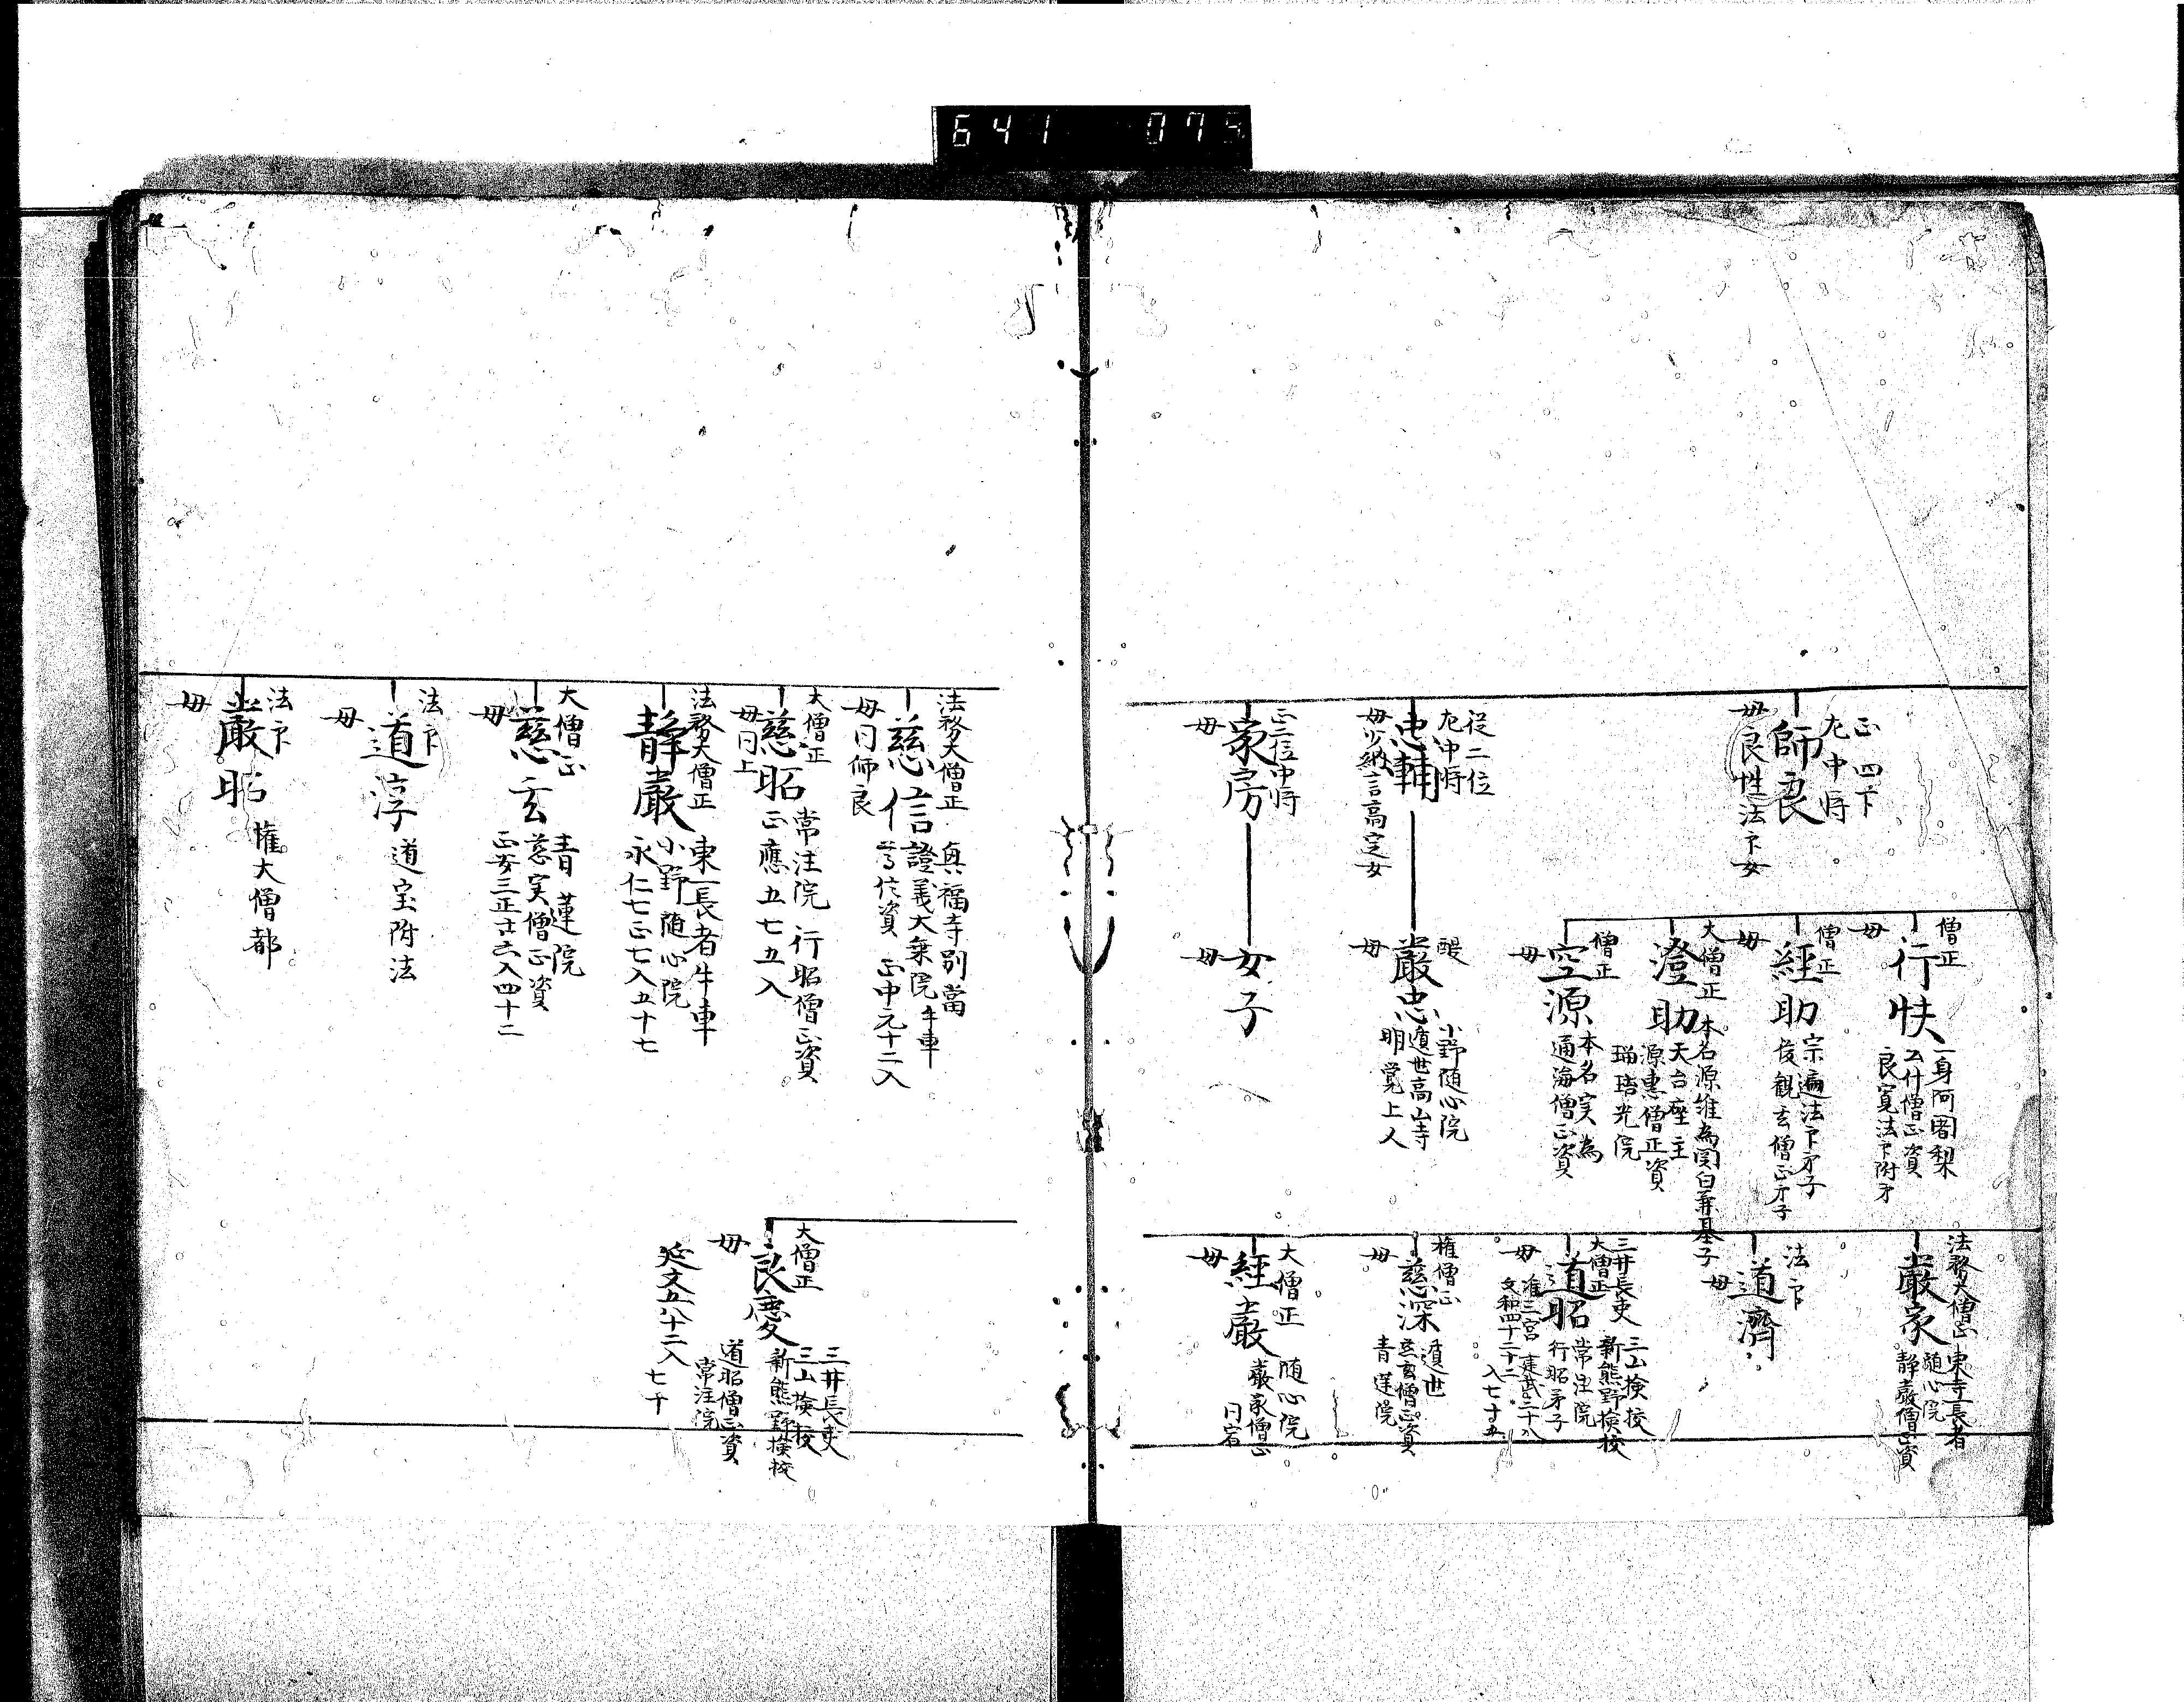 641 075
正四下
左中将
師良
母良性法印女
従二位
左中将
忠輔
母少納言高定女
正三位中将
家房
母
僧正
行快
母
一身阿闍梨
公什僧正資
良寛法印附弟
僧正
経助
母
宗遍法印弟子
後観玄僧正弟子
大僧正
澄助
本名源雅為関白兼基子
天台座主
源恵僧正資
僧正
空源
母
本名実為
通海僧正資
醍
厳忠
母
小野随心院
遁世高山寺
明覚上人
女子
母
法務大僧正
厳家
東寺長者
随心院
静厳僧正資
法印
道濟
母
三井長吏
大僧正
道昭
母
三山検校
新熊野検校
常住院
行昭弟子
准三宮
権僧正
慈深
母
遁世
慈玄僧正資
青蓮院
大僧正
経厳
母
随心院
厳家僧正
同宿
法務大僧正
慈信
母同師良
興福寺別当
證義大乗院牛車
尊信資 正中元十二入
大僧正
慈昭
母同上
常住院 行昭僧正資
正應五七五入
法務大僧正
静厳
東一長者牛車
小野随心院
永仁七正七入五十七
大僧正
慈玄
母
青蓮院
慈実僧正資
法印
道淳
母
道宝附法
法印
厳昭
母
権大僧都
大僧正
良慶
母
三井長吏
三山検校
新熊野検校
道昭僧正資
常住院
延文五八十二入
七十